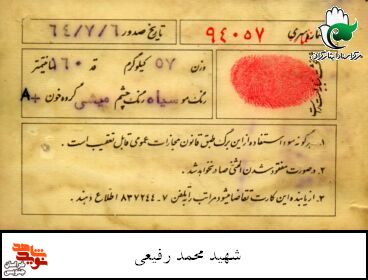 شماره سری ۹۴۰۵۷ تاریخ صدور ۶۴/۷/۶
وزن ۵۷ کیلوگرم قد ۱۶۰ سانتیمتر
رنگ مو سیاه رنگ چشم میشی گروه خون A+
۱ـ هرگونه سوء استفاده از این برگ طبق قانون مجازات عمومی قابل تعقیب است.
۲ـ در صورت مفقود شدن المثنی صادر نخواهد شد.
۳ـ از یابنده این کارت تقاضا میشود مراتب را با تلفن ۷-۸۳۷۲۴۴ اطلاع دهند.
شهید محمد رفیعی